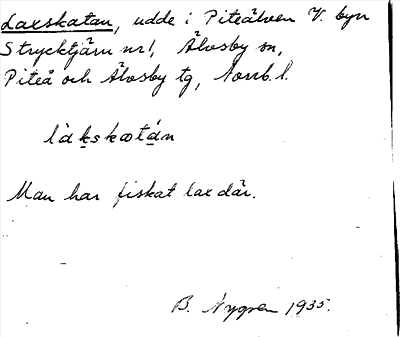 Laxskatan, udde i Piteälven V. byn
Strycktjärn nr 1, Älvsby sn,
Piteå och Älvsby tg, Norrb. l.
làkskatán
Man har fiskat lax där.
B. Nygren 1935.